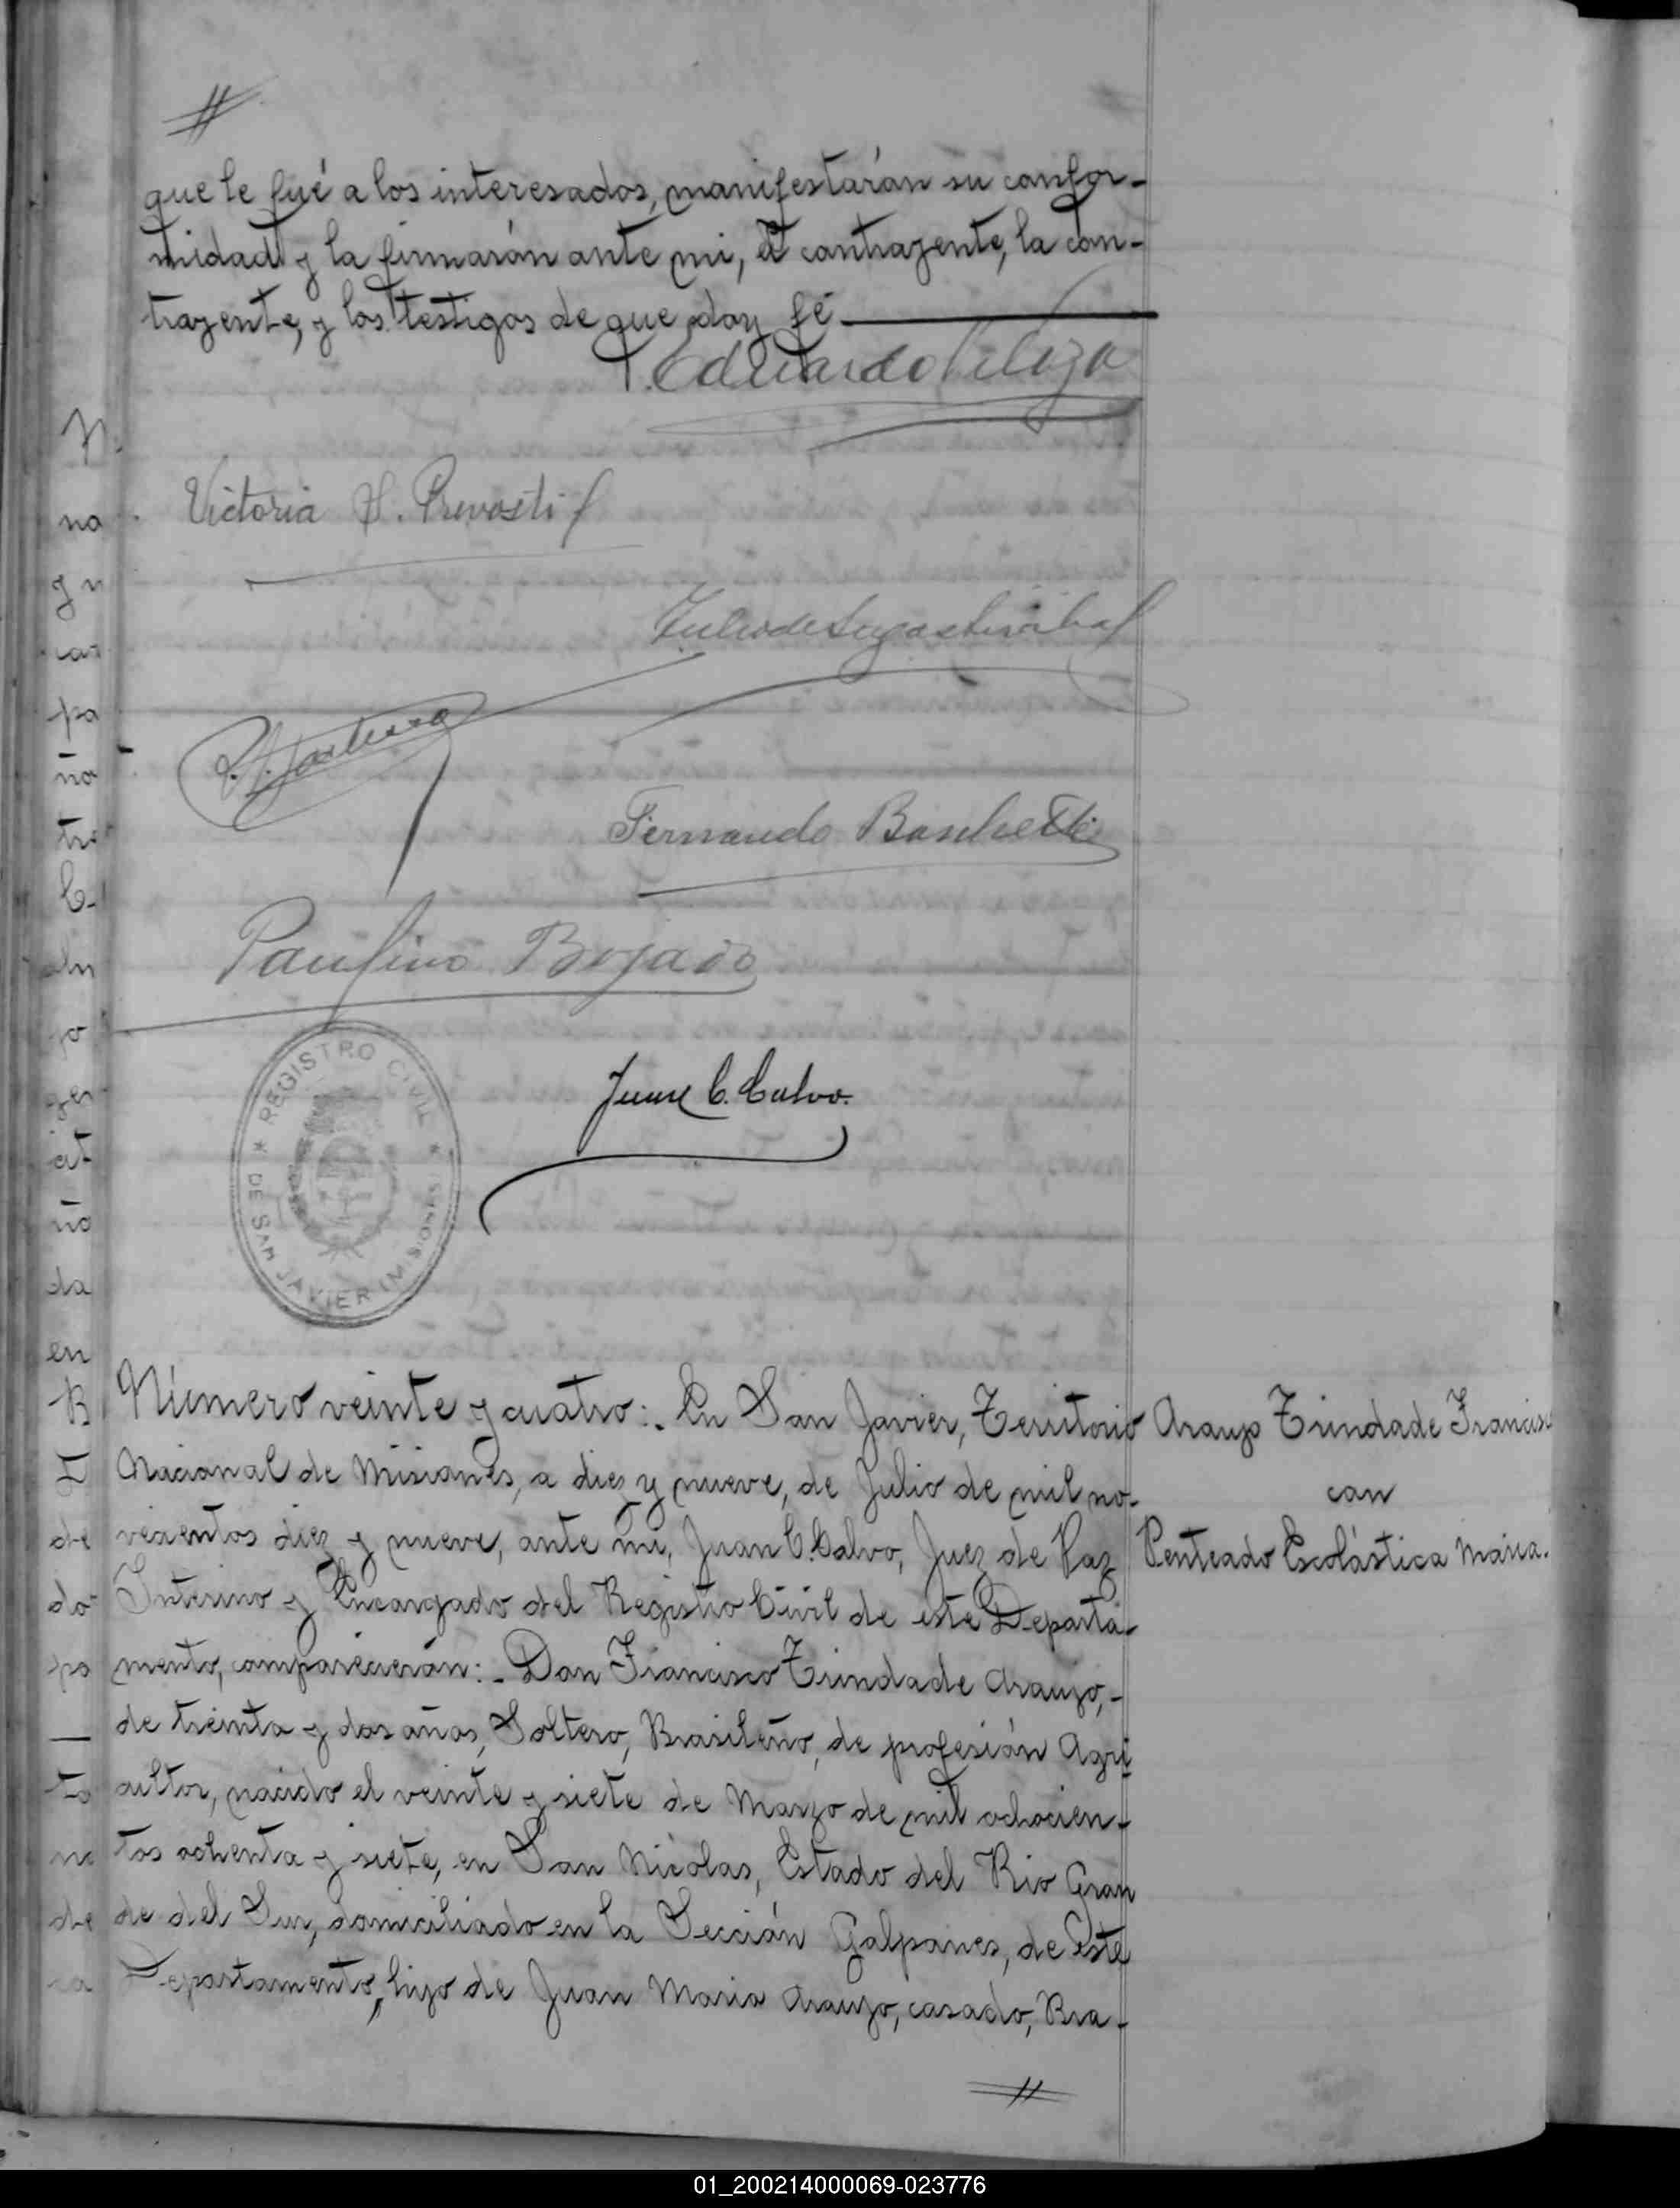 //
que le fué a los interesados, manifestarán su confor-
midad y la firmarán ante mi, el contrayente, la con-
trayente, y los testigos de que doy fé
T. Eduardo Veloza
Victoria S. Prevosti
Julio de
Fernando Baschetti
Paulino
REGISTRO CIVIL
DE SAN JAVIER (MISIONES)
Juan C. Calvo.
Número veinte y cuatro:- En San Javier, Territorio
Nacional de Misiones, a diez y nueve, de Julio de mil no-
vecientos diez y nueve, ante mi, Juan C. Calvo, Juez de Paz
Interino y Encargado del Registro Civil de este Departa-
mento, comparecierón:- Don Francisco Trindade Araujo,-
de treinta y dos años, Soltero, Brasileño, de profesión Agri
cultor, nacido el veinte y siete de Marzo de mil ochocien-
tos ochenta y siete, en San Nicolas, Estado del Rio Gran
de del Sur, domiciliado en la Sección Galpones, de Este
Departamento, hijo de Juan Maria Araujo, casado, Bra-
//
Araujo Trindade Francisc
con
Penteado Escolástica Maria.
N.
na
y n
car
pa
ño
tre
C-
aln
yo
ger
cit
ño
da
en
B
de
do
po
to
no
de
ca
01_200214000069-023776